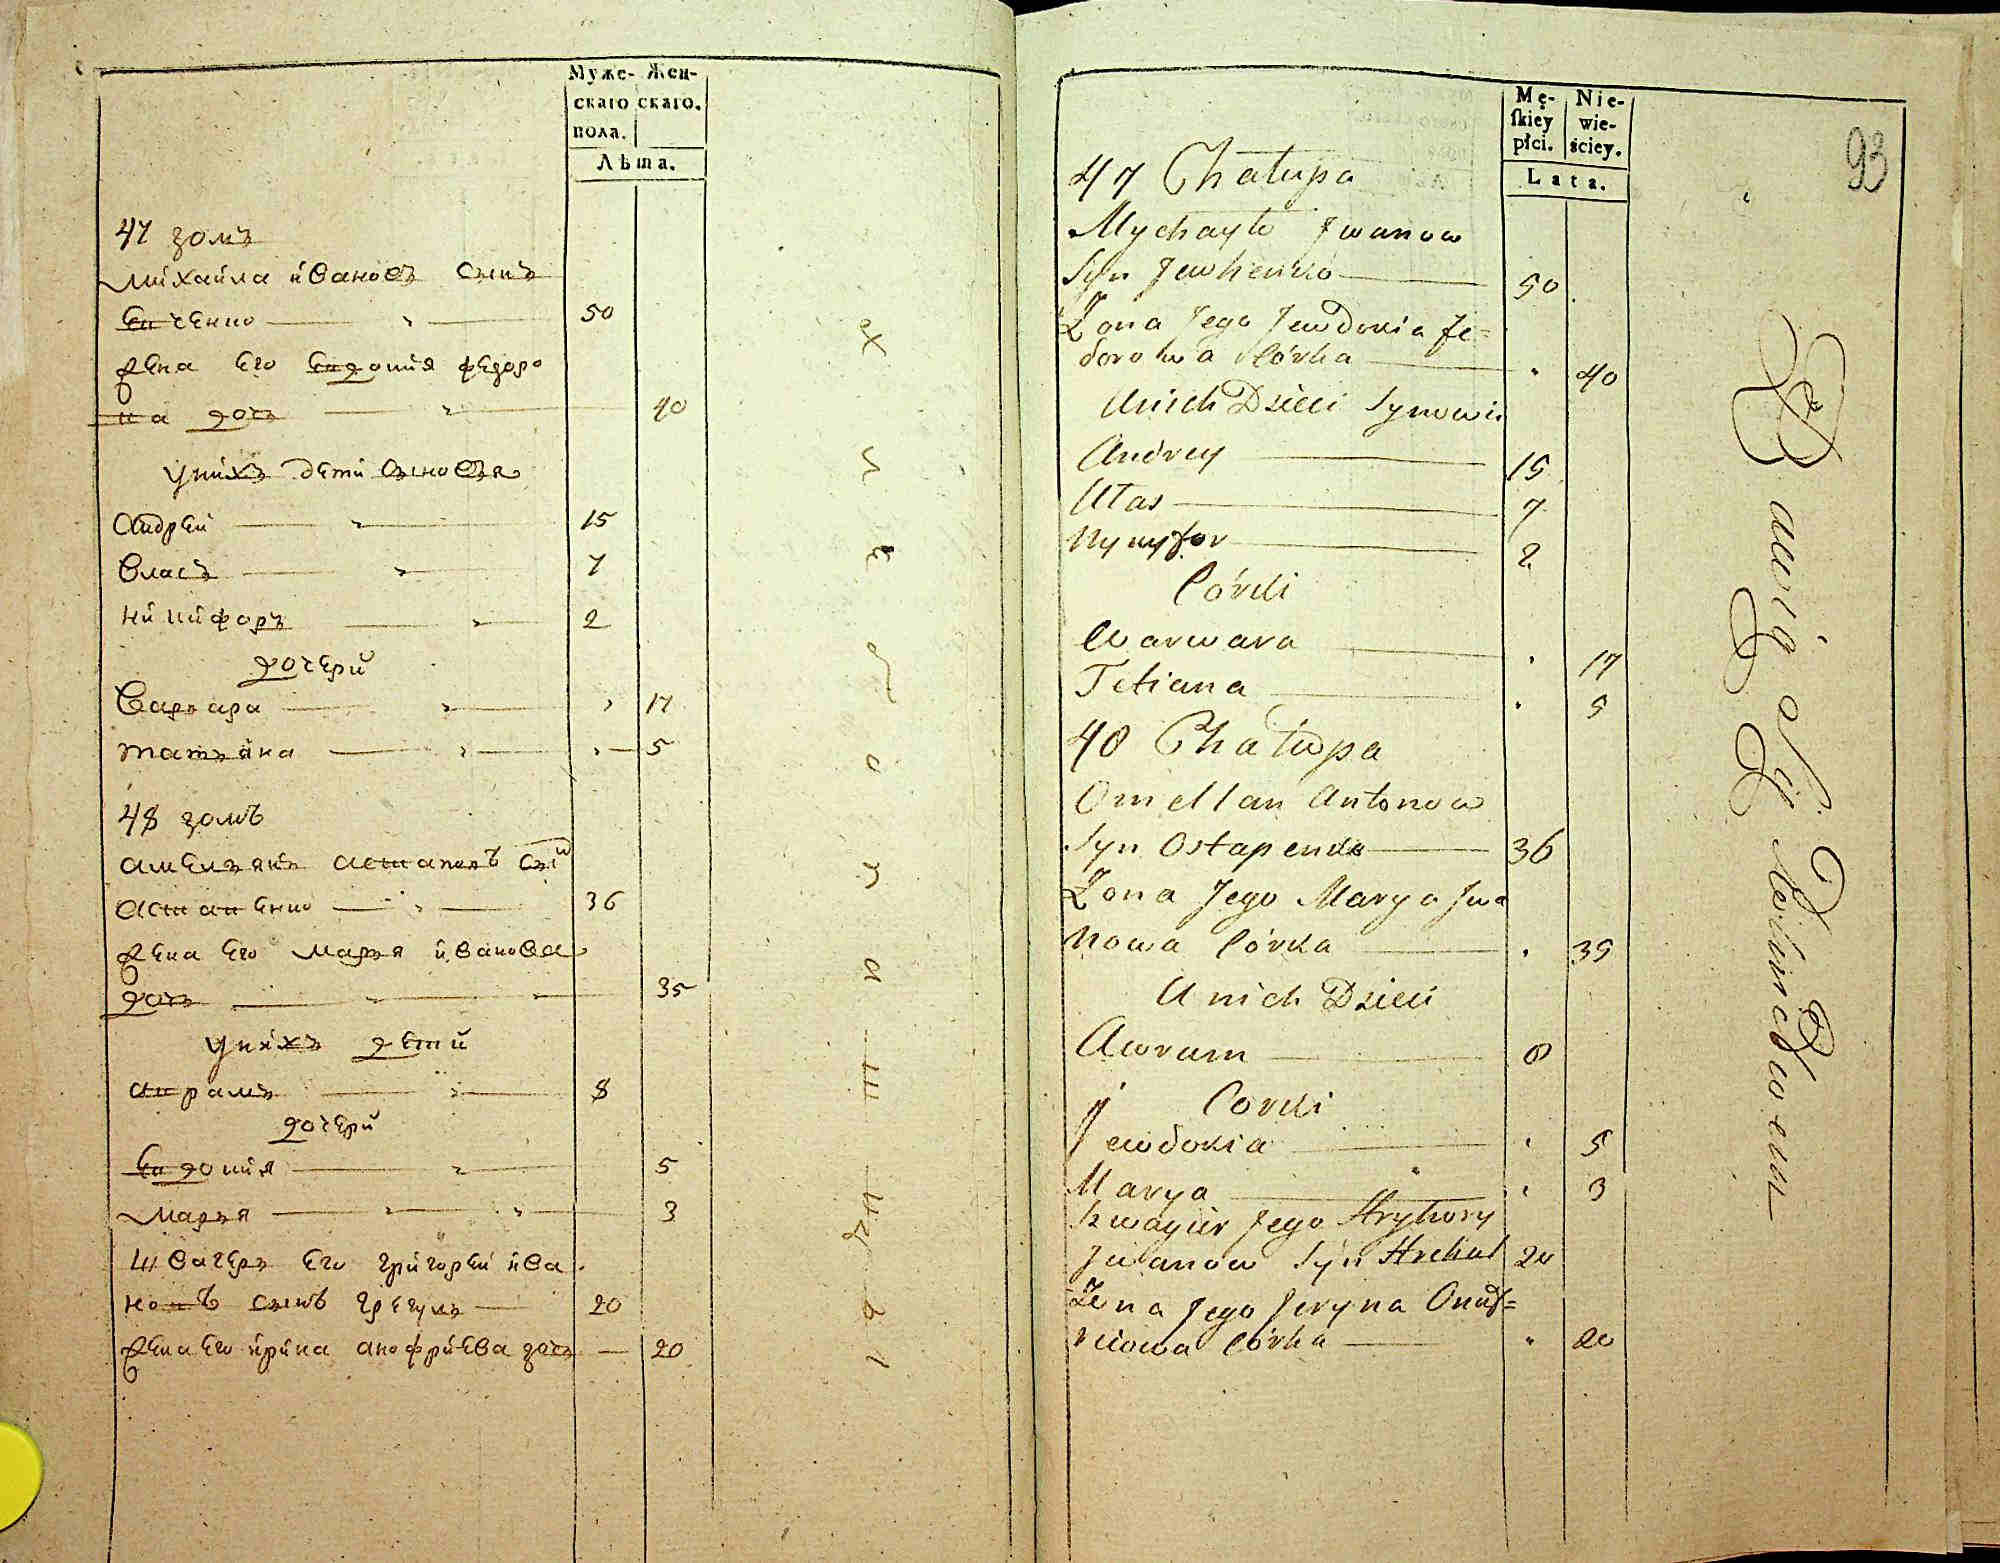 Муже- Жен-
скаго скаго.
пола.
Лѣта.
47 домъ
михайла ивановъ сынъ
евченко 50
жена его евдокия федоро
ва дочь 40
у нихъ дети сыновья
андрей 15
власъ 7
никифоръ 2
дочери
варвара 17
татьяна 5
48 домъ
амельянъ
астапенко 36
жена его марья иванова
дочь 35
у нихъ дети
аврамъ 8
дочери
евдокия 5
марья 3
швагеръ его григорей ива
новъ сынъ грегуль 20
жена его ирина анофриева дочь 20
93
Mę- Nie-
skiey wie-
płci. ściey.
Lata.
47 Chałupa
Mychayło Iwanow
Syn Jewhenko 50
Żona Jego Jewdokia Fe=
dorowa Córka 40
U nich Dzieci Synowie
Andrey 15
Ułas 7
Nykyfor 2
Córki
Warwara 17
Tetiana 5
48 Chałupa
Omelian Antonow
Syn Ostapenko 36
Żona Jego Marya Iwa
nowa Córka 35
U nich Dzieci
Awram 8
Corki
Jewdokia 5
Marya 3
Szwagier Jego Hryhory
Iwanow Syn Hrehul 20
Żona Jego Jeryna Onuf=
reiowa Córka 20
Bawią się